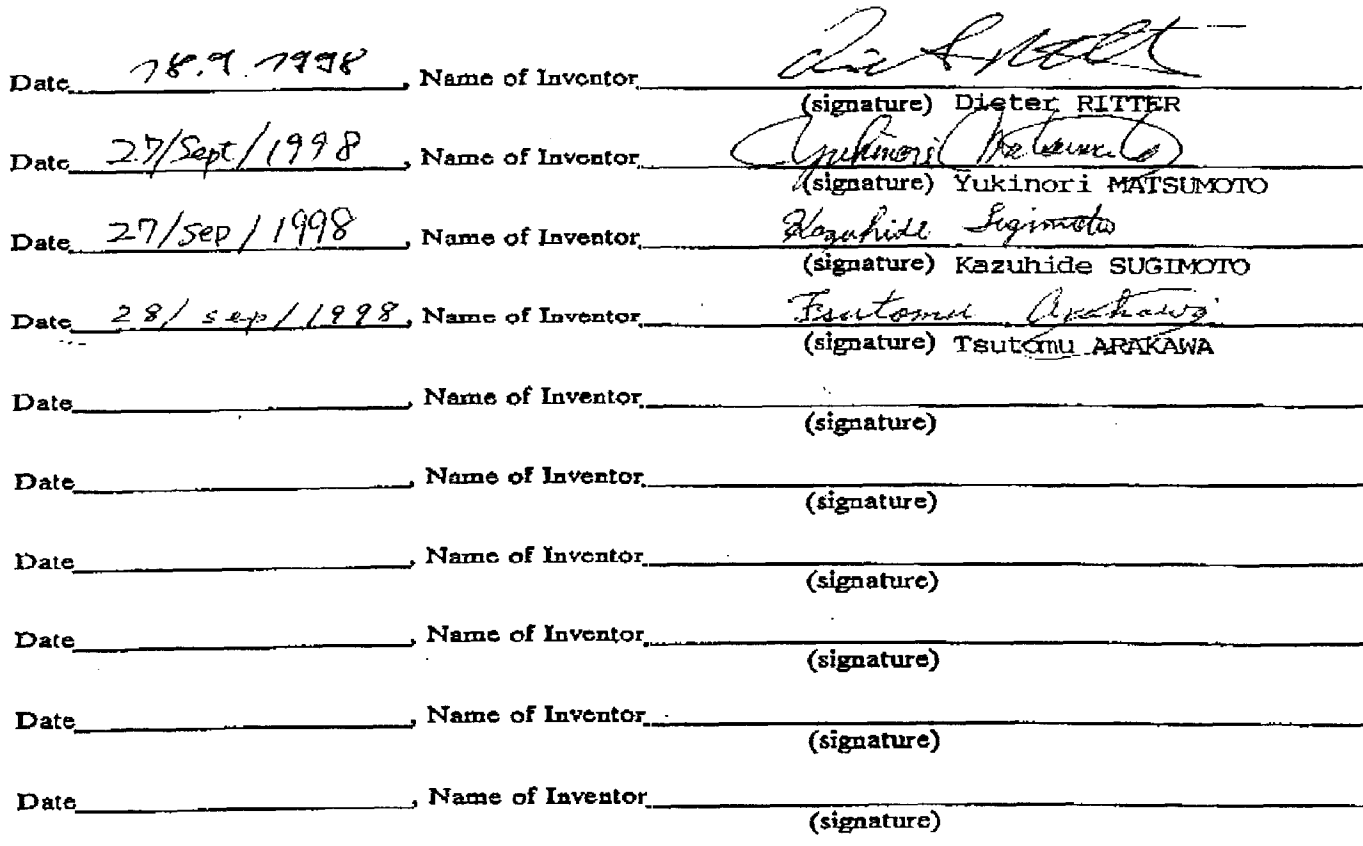 Date 18.9.1998, Name of Inventor
(signature) Dieter RITTER
Date 27/Sept/1998, Name of Inventor Yukinori Matsumoto
(signature) Yukinori MATSUMOTO
Date 27/sep/1998, Name of Inventor Kazuhide Sugimoto
(signature) Kazuhide SUGIMOTO
Date 28/sep/1998, Name of Inventor Tsutomu Arakawa
(signature) Tsutomu ARAKAWA
Date, Name of Inventor
(signature)
Date, Name of Inventor
(signature)
Date, Name of Inventor
(signature)
Date, Name of Inventor
(signature)
Date, Name of Inventor
(signature)
Date, Name of Inventor
(signature)